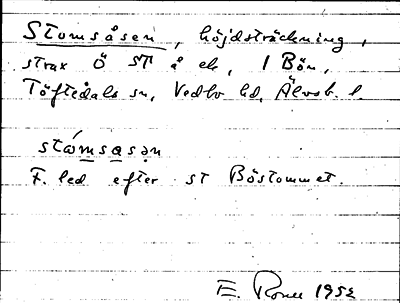 Stomsåsen, höjdsträckning,
strax Ö ST å ek, 1 Bön,
Töftedals sn, Vedbo hd, Älvsb. l.
stómsasən
F. led efter st Böstommet.
E. 1952